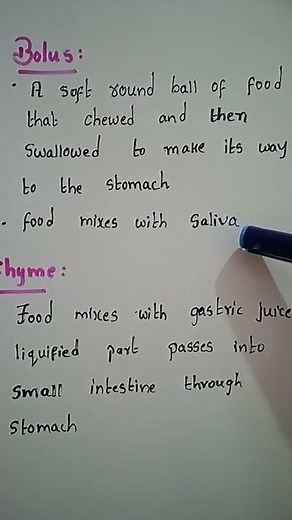 Bolus:
· A soft round ball of food
that chewed and then
Swallowed to make its way
to the stomach
- food mixes with Saliva
Chyme:
Food mixes with gastric juice
liquified part passes into
Small intestine through
Stomach